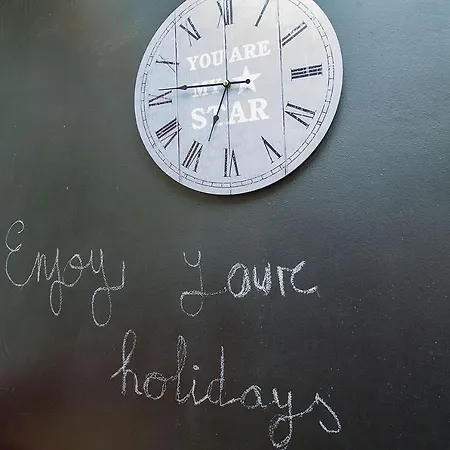 YOU ARE
MY ★
STAR
Enjoy Your
holidays